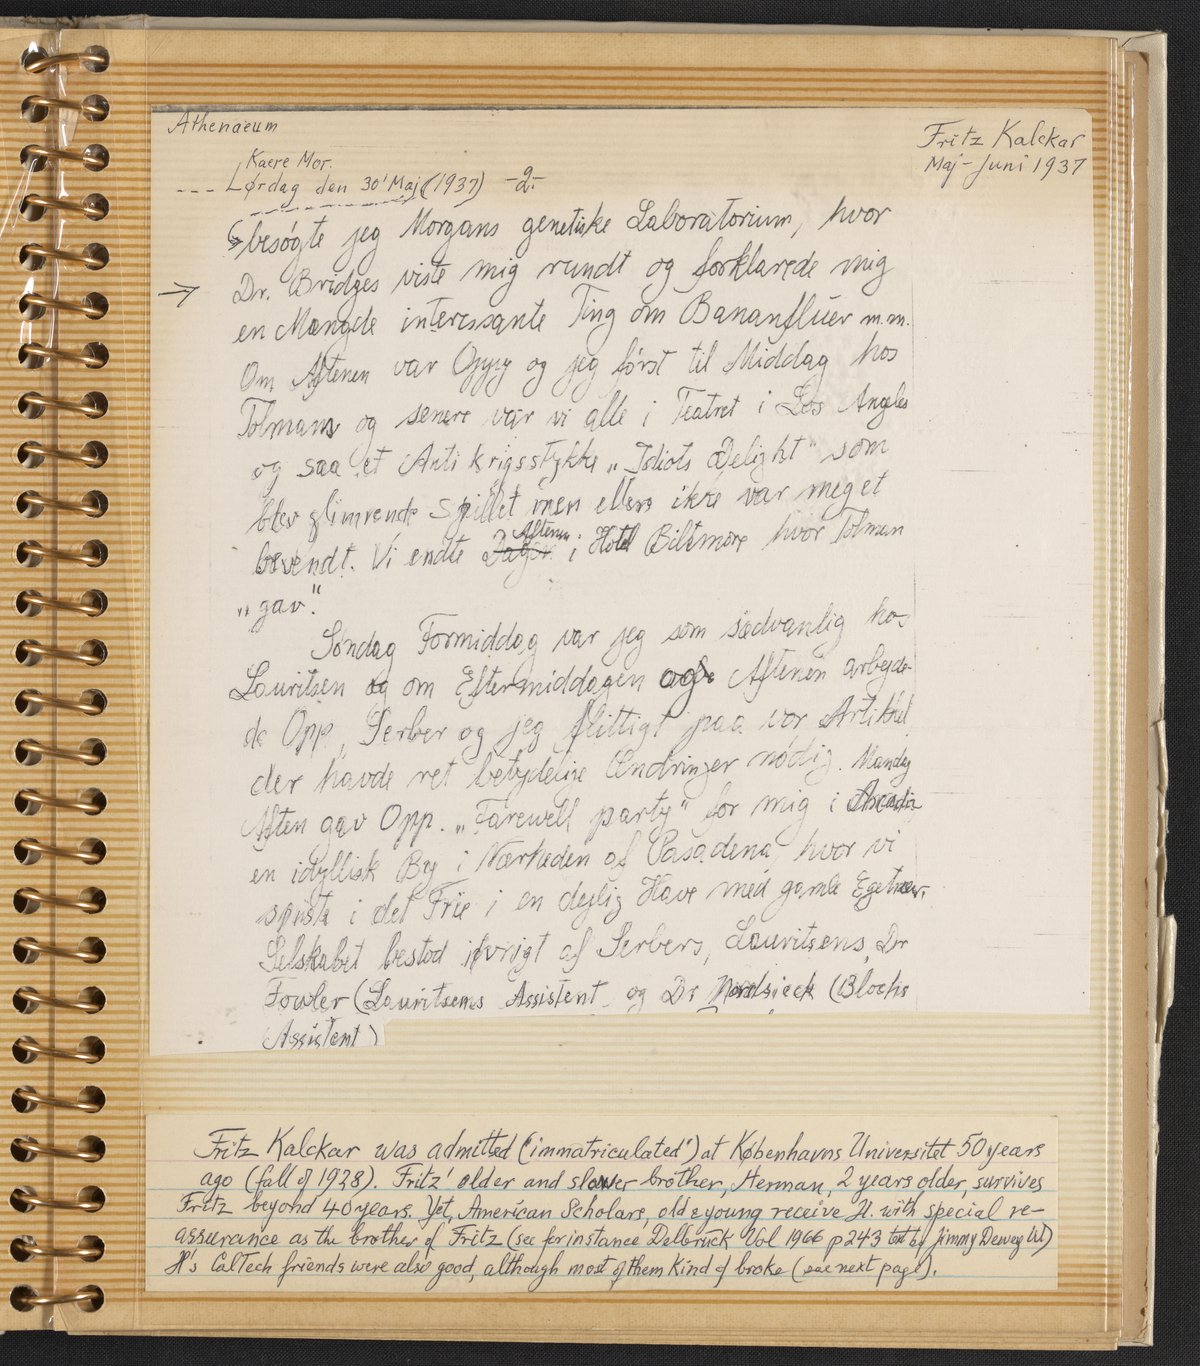 Athenaeum
Fritz Kalckar
Maj-Juni 1937
Kaere Mor.
--- Lørdag den 30' Maj (1937) -2-
besøgte jeg Morgans genetiske Laboratorium, hvor
Dr. Bridges viste mig rundt og forklarede mig
en Mængde interessante Ting om Bananfluer m.m.
Om Aftenen var Oppy og jeg først til Middag hos
Tolmans og senere var vi alle i Teatret i Los Angeles
og saa et Anti krigsstykke „Idiots Delight" som
blev glimrende spillet men ellers ikke var meget
bevendt. Vi endte Aftenen i Hotel Biltmore hvor Tolman
„gav".
Søndag Formiddag var jeg som sædvanlig hos
Lauritsen og om Eftermiddagen og Aftenen arbejde-
de Opp, Serber og jeg flittigt paa vor Artikkel
der havde ret betydelige Ændringer nødig. Mandag
Aften gav Opp. „Farewell party" for mig i Arcadia
en idyllisk By i Nærheden af Pasadena, hvor vi
spiste i det Frie i en dejlig Have med gamle Egetræer.
Selskabet bestod iøvrigt af Serbers, Lauritsens, Dr
Fowler (Lauritsens Assistent og Dr Nordsieck (Blochs
Assistent)
Fritz Kalckar was admitted ("immatriculated") at Københavns Universitet 50 years
ago (fall of 1928). Fritz' older and slower brother, Herman, 2 years older, survives
Fritz beyond 40 years. Yet, American Scholars, old & young receive H. with special re-
assurance as the brother of Fritz (see for instance Delbrück Vol 1966 p 243 by Jimmy Dewey W)
H's CalTech friends were also good, although most of them kind of broke (see next page).